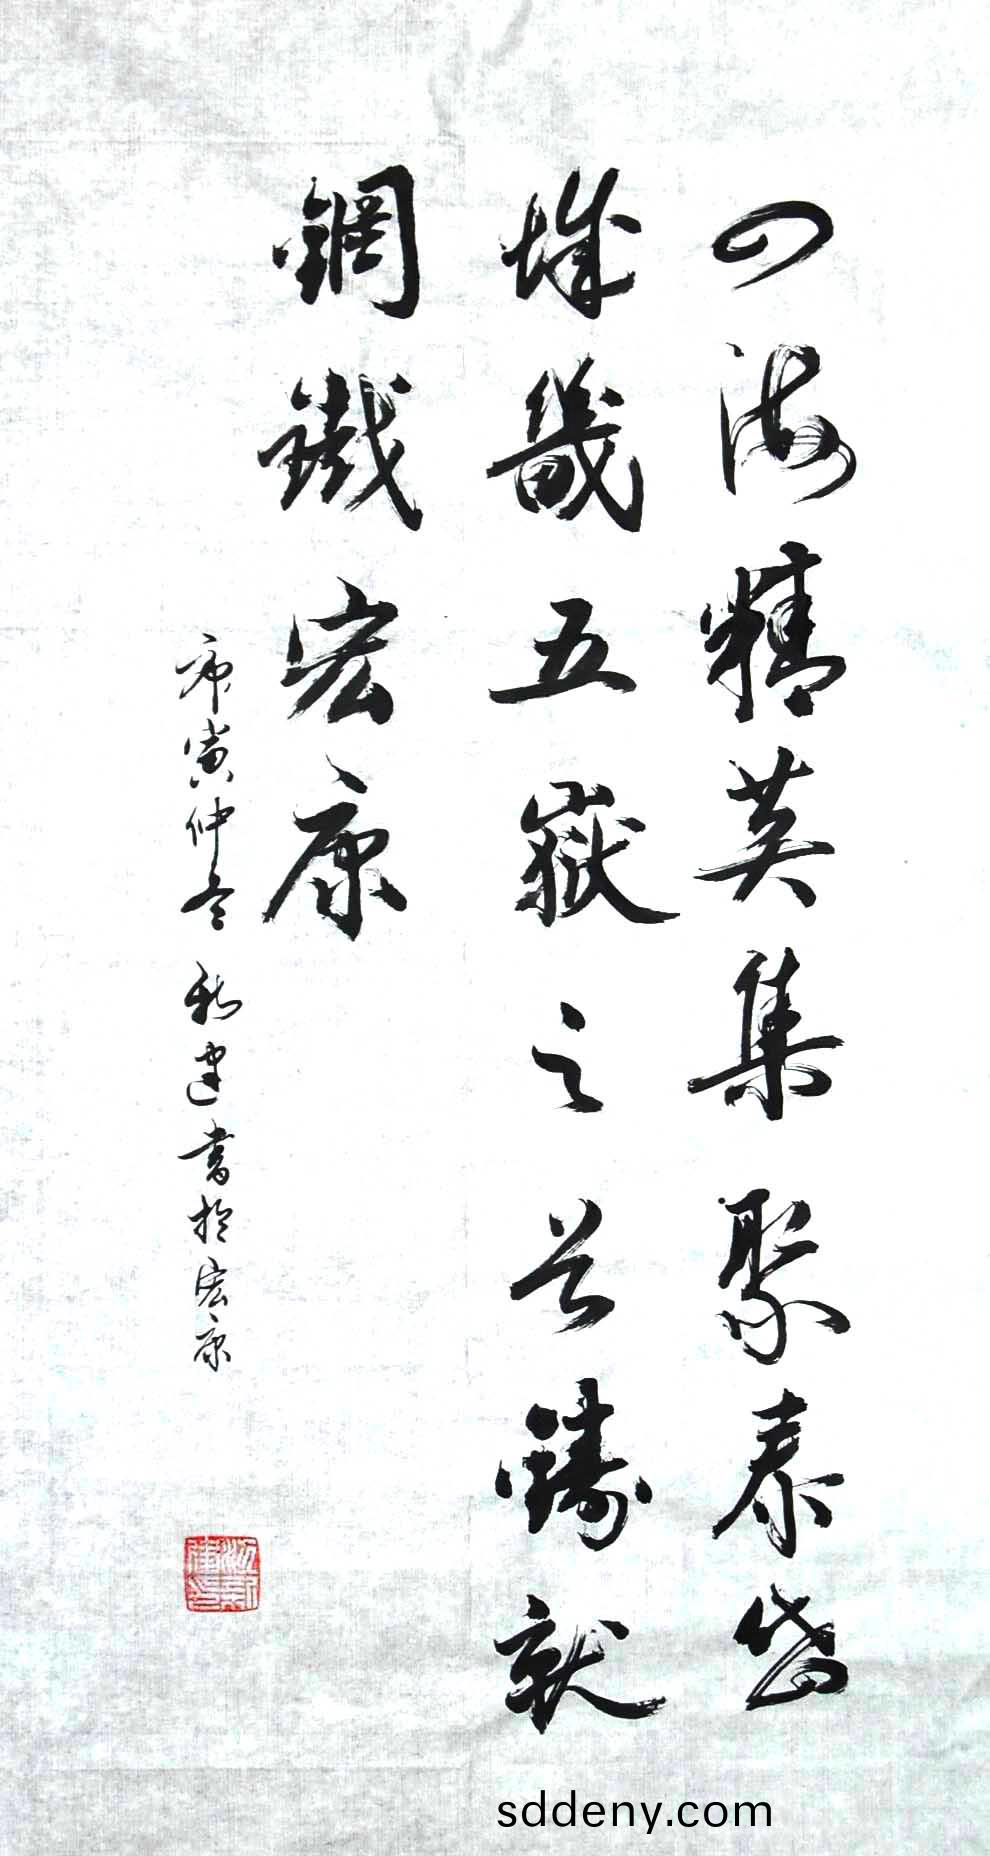 四海精英集聚泰岱
城畿五嶽之首鑄就
鋼鐵宏康
庚寅仲冬 新建書於宏康
sddeny.com